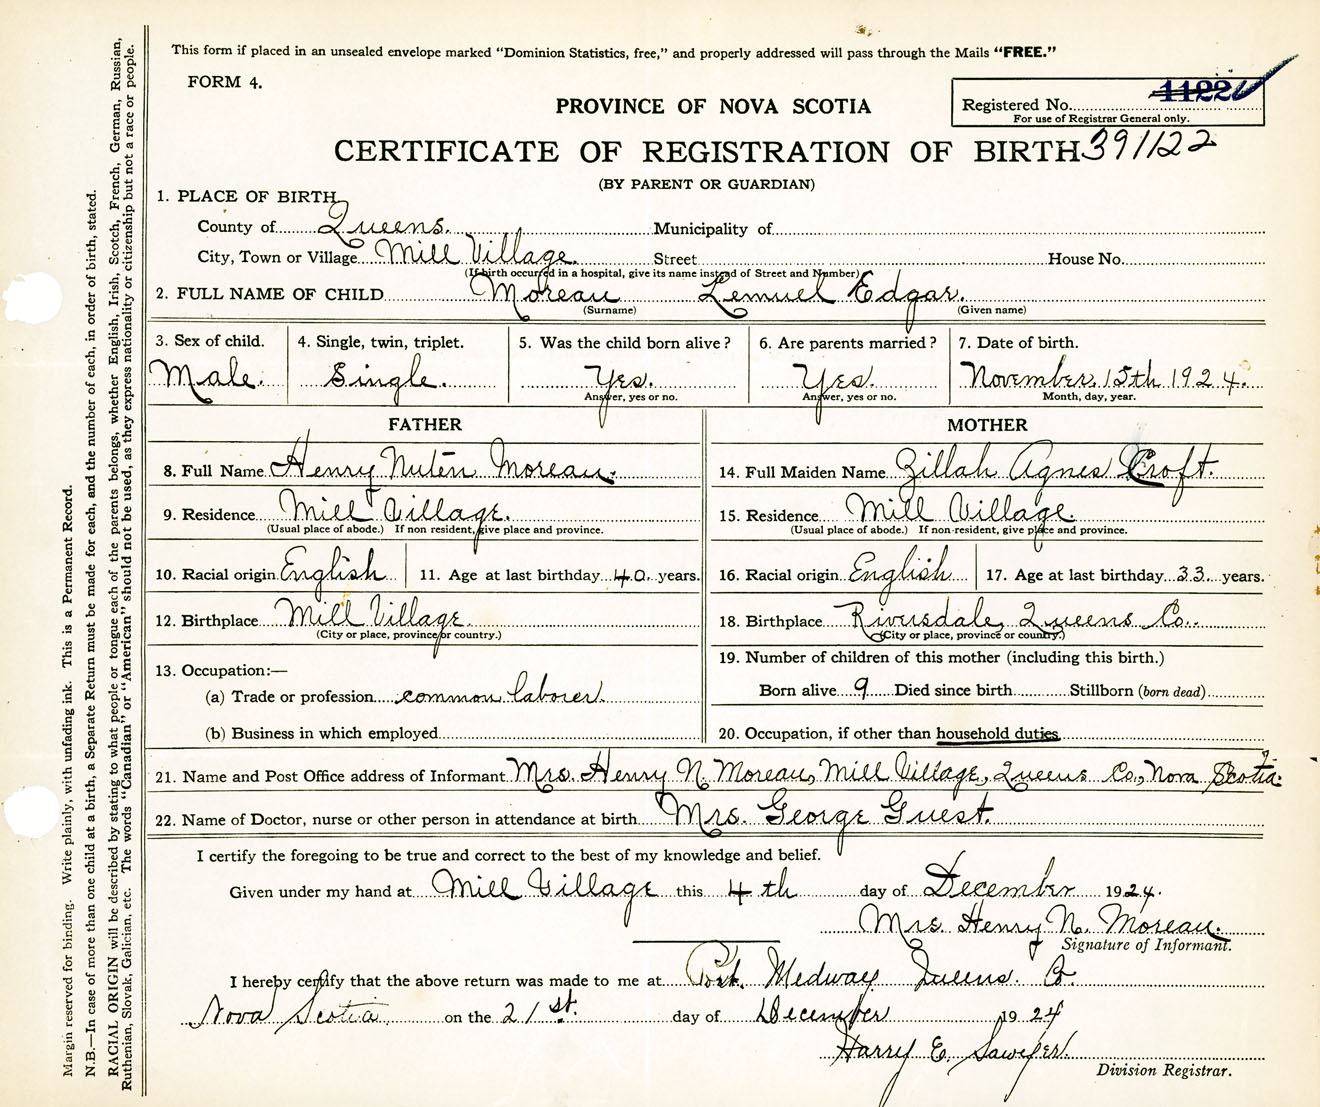 This form if placed in an unsealed envelope marked “Dominion Statistics, free,” and properly addressed will pass through the Mails “FREE.”
FORM 4.
PROVINCE OF NOVA SCOTIA
Registered No. 1122
For use of Registrar General only.
CERTIFICATE OF REGISTRATION OF BIRTH 391122
(BY PARENT OR GUARDIAN)
1. PLACE OF BIRTH
County of Queens. Municipality of
City, Town or Village Mill Village. Street House No.
(If birth occurred in a hospital, give its name instead of Street and Number)
2. FULL NAME OF CHILD Moreau Lemuel Edgar.
(Surname) (Given name)
3. Sex of child. 4. Single, twin, triplet. 5. Was the child born alive? 6. Are parents married? 7. Date of birth.
Male. Single. Yes. Yes. November, 15th 1924.
Answer, yes or no. Answer, yes or no. Month, day, year.
FATHER MOTHER
8. Full Name Henry Nuten Moreau. 14. Full Maiden Name Zillah Agnes Croft.
9. Residence Mill Village. 15. Residence Mill Village.
(Usual place of abode.) If non resident, give place and province. (Usual place of abode.) If non-resident, give place and province.
10. Racial origin English 11. Age at last birthday 40 years. 16. Racial origin English 17. Age at last birthday 33 years.
12. Birthplace Mill Village. 18. Birthplace Riversdale, Queens Co.
(City or place, province or country.) (City or place, province or country.)
13. Occupation:— 19. Number of children of this mother (including this birth.)
(a) Trade or profession common laborer. Born alive 9 Died since birth Stillborn (born dead)
(b) Business in which employed 20. Occupation, if other than household duties
21. Name and Post Office address of Informant Mrs. Henry N. Moreau, Mill Village, Queens Co., Nova Scotia.
22. Name of Doctor, nurse or other person in attendance at birth Mrs. George Guest.
I certify the foregoing to be true and correct to the best of my knowledge and belief.
Given under my hand at Mill Village this 4th day of December 1924.
Mrs. Henry N. Moreau.
Signature of Informant.
I hereby certify that the above return was made to me at Port Medway Queens. Co.
Nova Scotia on the 21st. day of December 1924
Harry E. Sawyer.
Division Registrar.
Margin reserved for binding. Write plainly, with unfading ink. This is a Permanent Record.
N.B.—In case of more than one child at a birth, a Separate Return must be made for each, and the number of each, in order of birth, stated.
RACIAL ORIGIN will be described by stating to what people or tongue each of the parents belongs, whether English, Irish, Scotch, French, German, Russian,
Ruthenian, Slovak, Galician, etc. The words “Canadian” or “American” should not be used, as they express nationality or citizenship but not a race or people.